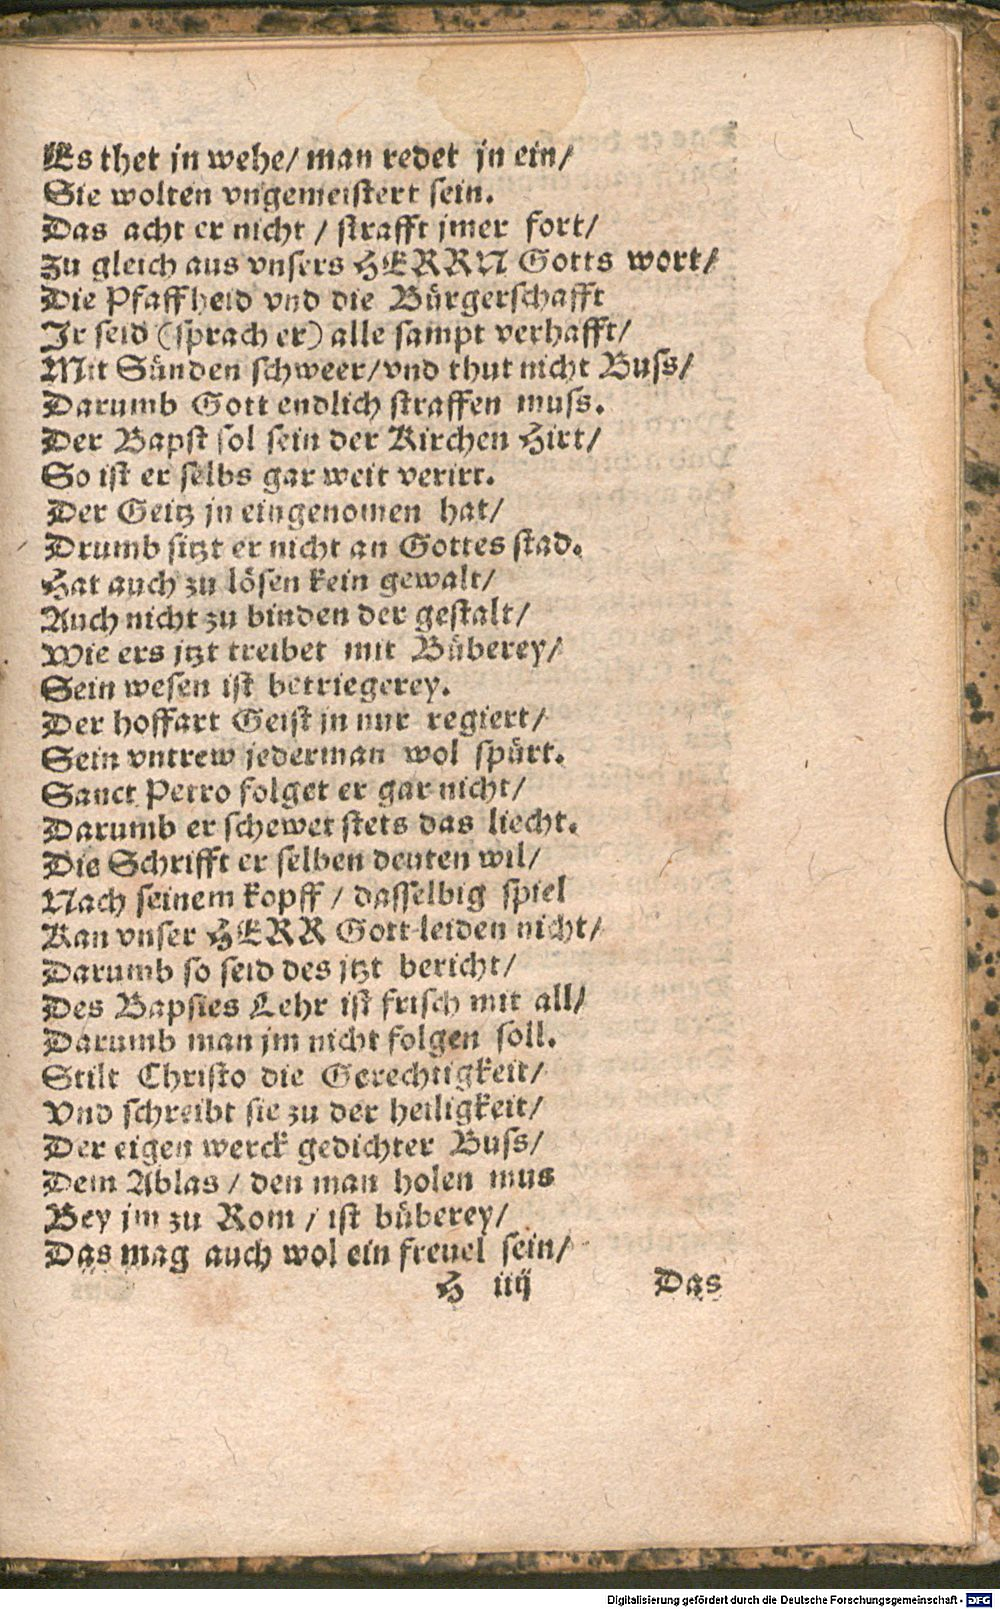 Es thet jn wehe/ man redet jn ein/
Sie wolten vngemeistert sein.
Das acht er nicht / strafft jmer fort/
Zu gleich aus vnsers HERRN Gotts wort/
Die Pfaffheid vnd die Bürgerschafft
Ir seid (sprach er) alle sampt verhafft/
Mit Sünden schweer/vnd thut nicht Buss/
Darumb Gott endlich straffen muss.
Der Bapst sol sein der Kirchen Hirt/
So ist er selbs gar weit verirt.
Der Geitz jn eingenomen hat/
Drumb sitzt er nicht an Gottes stad.
Hat auch zu lösen kein gewalt/
Auch nicht zu binden der gestalt/
Wie ers jtzt treibet mit Büberey/
Sein wesen ist betriegerey.
Der hoffart Geist jn nur regiert/
Sein vntrew jederman wol spürt.
Sanct Petro folget er gar nicht/
Darumb er schewet stets das liecht.
Die Schrifft er selben deuten wil/
Nach seinem kopff / dasselbig spiel
Kan vnser HERR Gott leiden nicht/
Darumb so seid des jtzt bericht/
Des Bapstes Lehr ist frisch mit all/
Darumb man jm nicht folgen soll.
Stilt Christo die Gerechtigkeit/
Vnd schreibt sie zu der heiligkeit/
Der eigen werck gedichter Buss/
Dem Ablas / den man holen mus
Bey jm zu Rom / ist büberey/
Das mag auch wol ein freuel sein/
H iiij Das
Digitalisierung gefördert durch die Deutsche Forschungsgemeinschaft - DFG